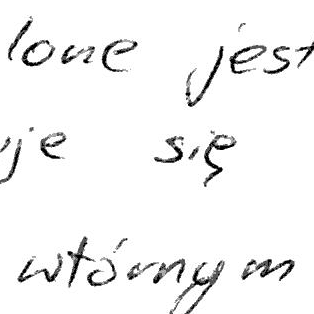 lone jest
je się
wtórnym